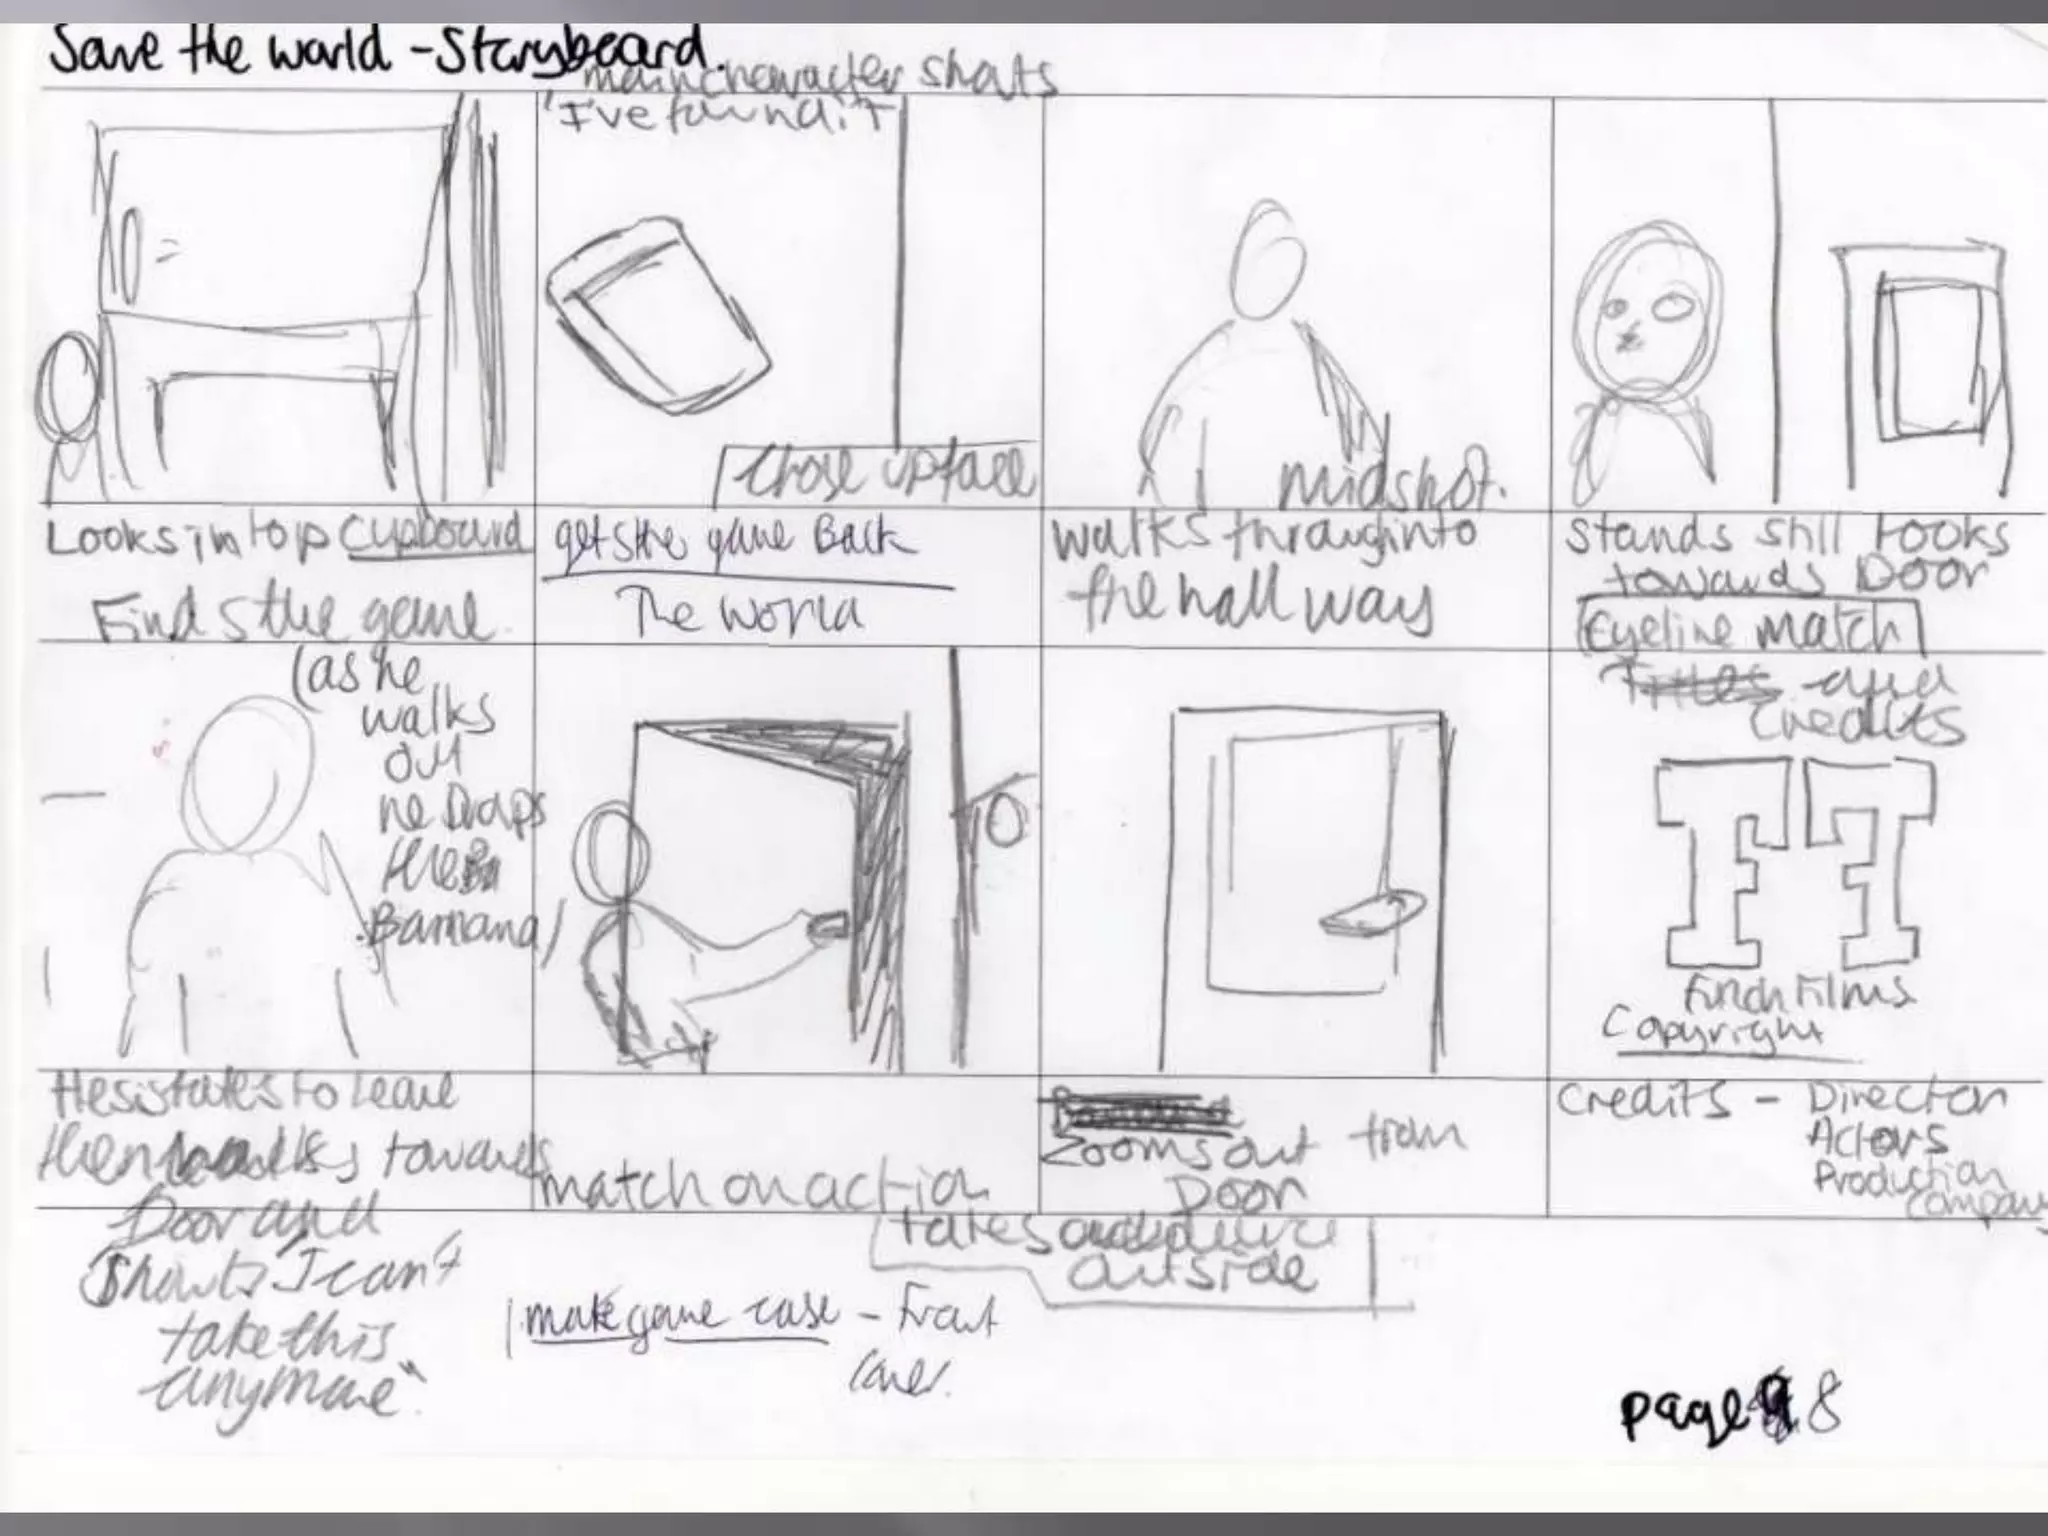 Save the world - Storyboard.
main character shouts
"I've found it
Close up face
midshot.
Looks in top cupboard
Finds the game.
gets the game Back
The World
walks through into
the hall way
Stands still looks
towards Door
Eyeline match
(as he
walks
out
he Drops
the
Bannana)
Titles and
Credits
FF
Finch Films
Copyright
Hesistates to leave
then walks towards
Door and
shouts "I can't
take this
anymore".
match on action
Zooms out from
Door
takes audience
outside
Credits - Director
Actors
Production
company
make game case - Front
cover.
page 8